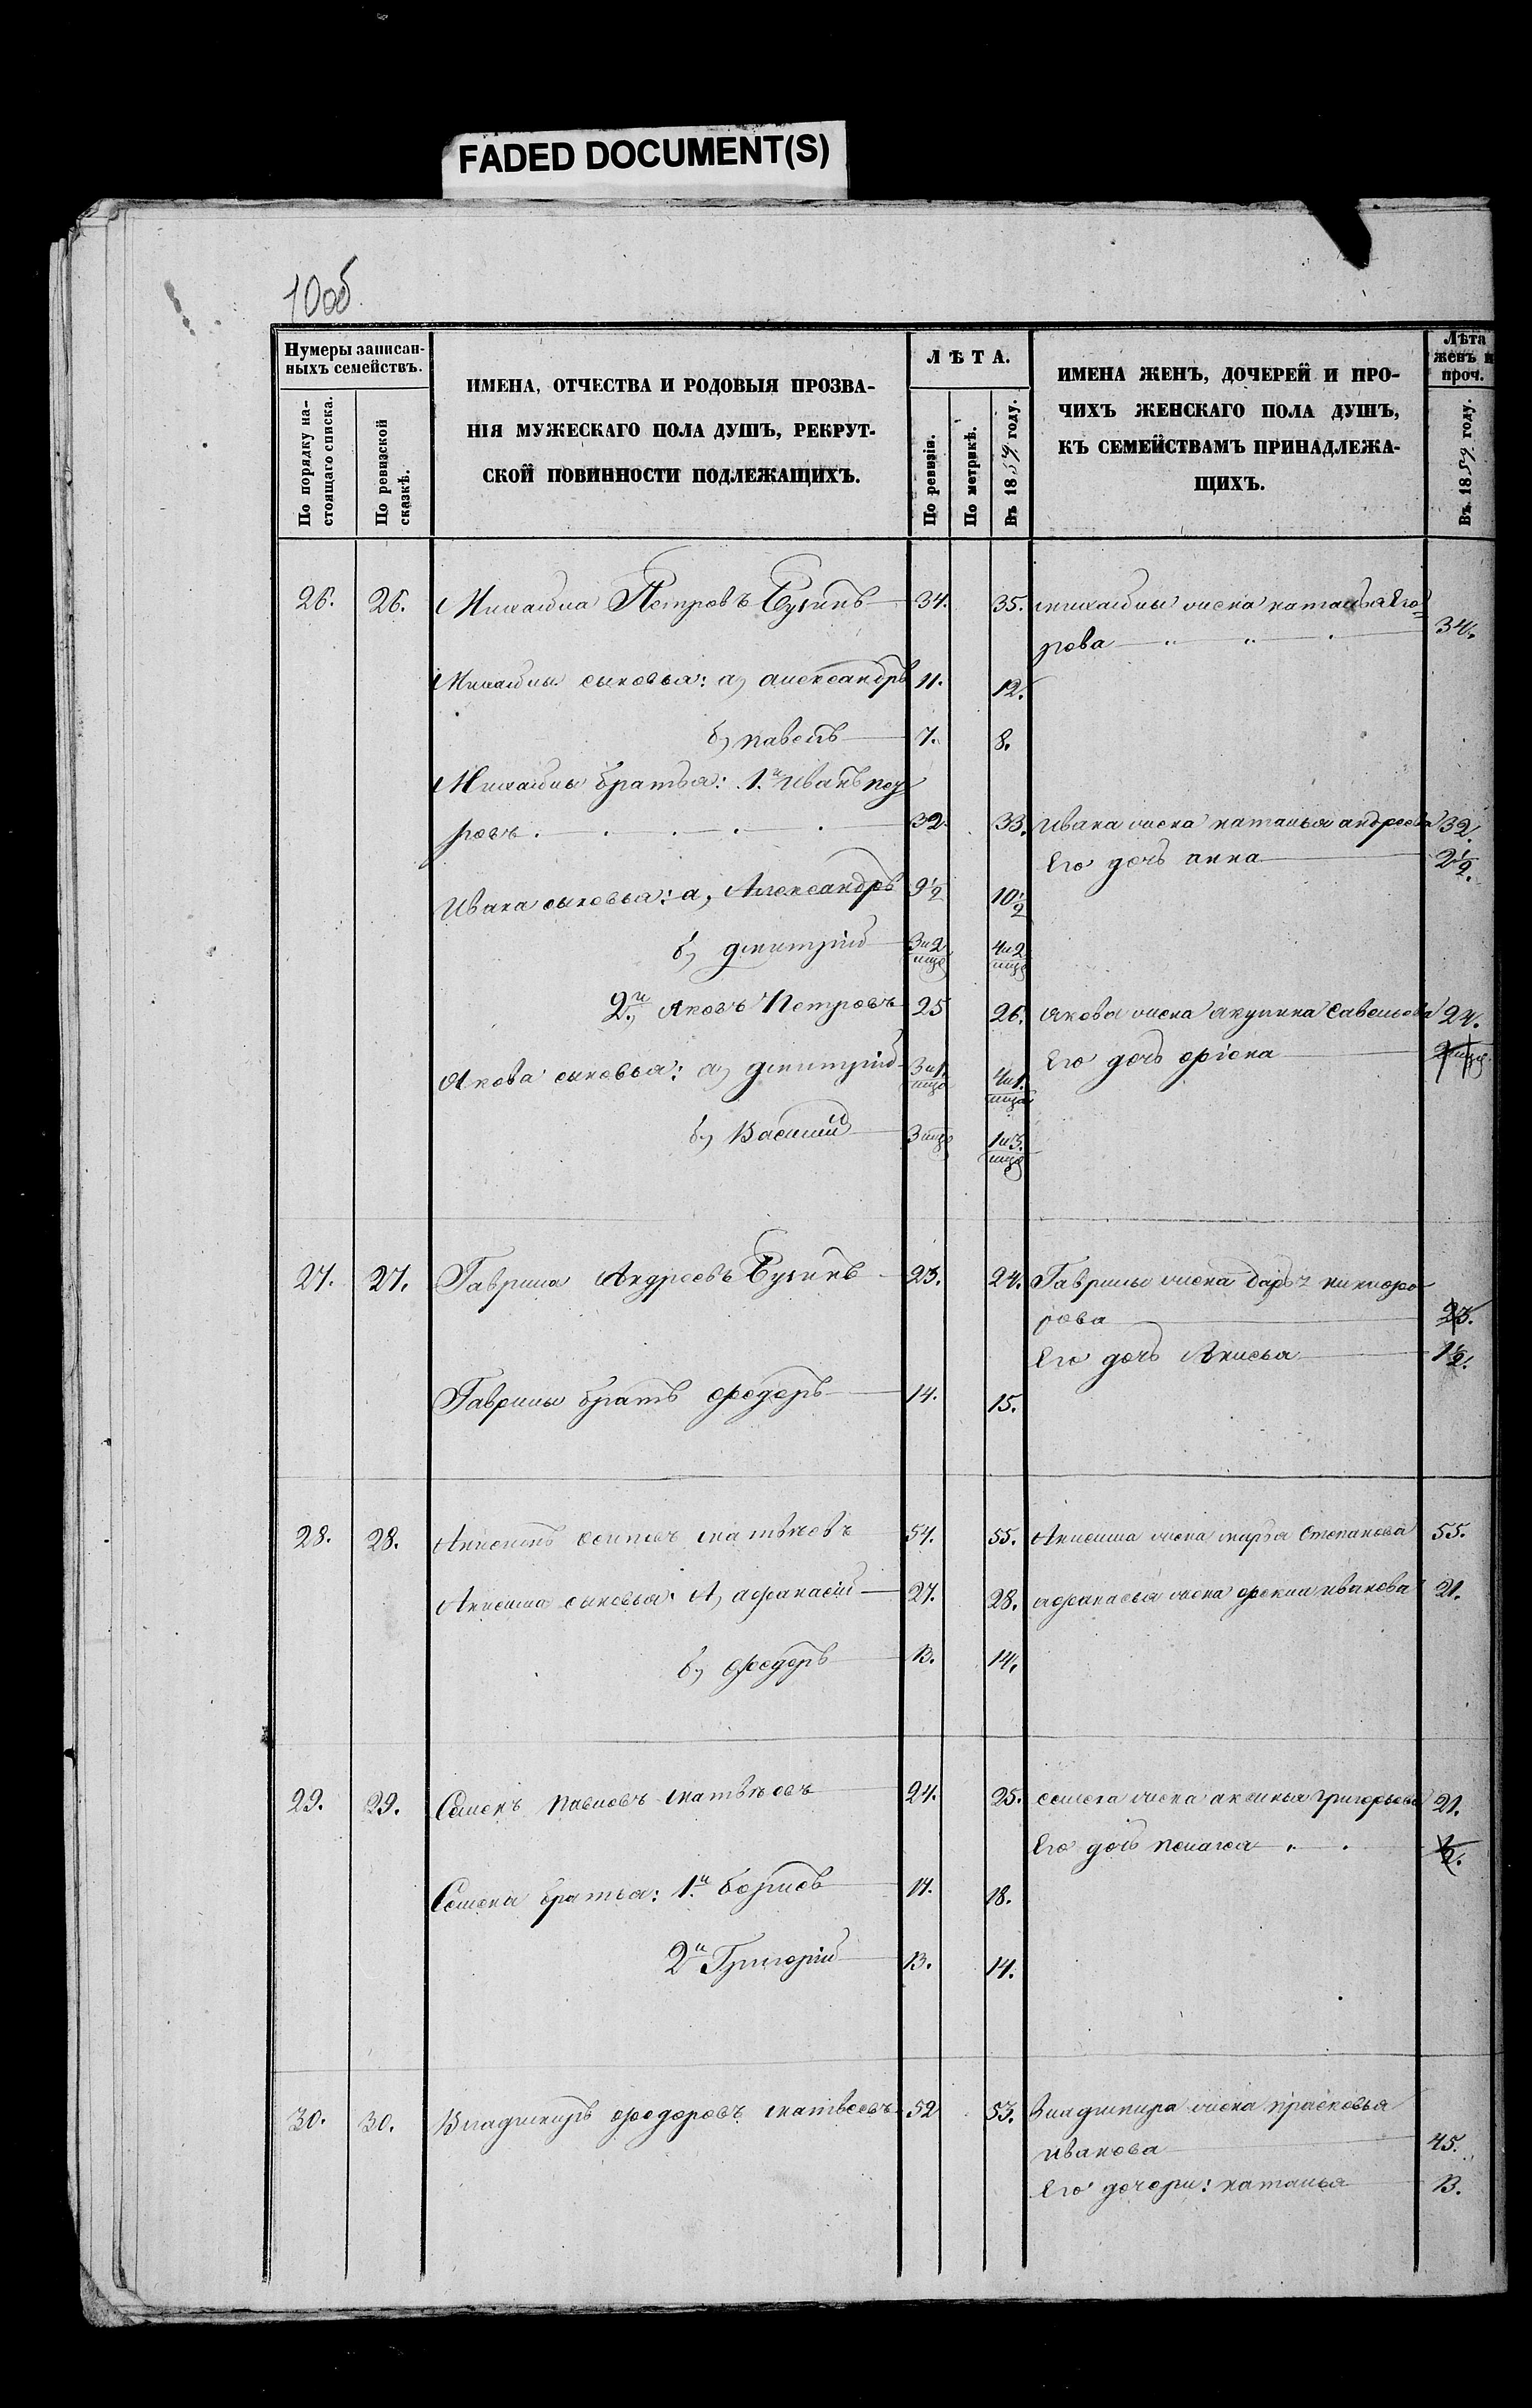 FADED DOCUMENT(S)
10об.
Нумеры записан-
ныхъ семействъ.
По порядку на-
стоящаго списка.
По ревизской
сказкѣ.
ИМЕНА, ОТЧЕСТВА И РОДОВЫЯ ПРОЗВА-
НІЯ МУЖЕСКАГО ПОЛА ДУШЪ, РЕКРУТ-
СКОЙ ПОВИННОСТИ ПОДЛЕЖАЩИХЪ.
ЛѢТА.
По ревизіи.
По метрикѣ.
Въ 1859 году.
ИМЕНА ЖЕНЪ, ДОЧЕРЕЙ И ПРО-
ЧИХЪ ЖЕНСКАГО ПОЛА ДУШЪ,
КЪ СЕМЕЙСТВАМЪ ПРИНАДЛЕЖА-
ЩИХЪ.
Лѣта
женъ и
проч.
Въ 1859 году.
26. 26. Михайла Петровъ 34. 35. михайлы жена наталья Его=
рова 34.
Михайлы сыновья: а, александръ 11. 12.
б, павелъ 7. 8.
Михайлы братья: 1.й Иванъ пет
ровъ. 32. 33. Ивана жена наталья андреева 32.
Его дочь анна 2 1/2.
Ивана сыновья: а, Александръ 9 1/2 10 1/2
б, дмитрій 3 и 2 мця 4 и 2 мця
2.й яковъ Петровъ 25 26. якова жена акулина Савельева 24.
Его дочь орина
Якова сыновья: а, дмитрій 3 и 1 мца 4 и 1. мца
б, Василий 3 мця 1 и 3. мця
27. 27. Гаврила Андреевъ 23. 24. Гаврилы жена дарья никифо
рова 23.
Его дочь Анисья 1 1/2.
Гаврилы братъ федоръ 14. 15.
28. 28. Анисимъ осиповъ матвѣевъ 54. 55. Анисима жена марья Степанова 55.
Анисима сыновья: А, афанасій 27. 28. афанасья жена фекла иванова 21.
б, федоръ 13. 14.
29. 29. Семенъ павловъ матвѣевъ 24. 25. семена жена аксинья григорьева 21.
Его дочь пелагея 1/2.
Семена братья: 1.й борисъ 17. 18.
2й Григорій 13. 14.
30. 30. Владимиръ федоровъ матвеевъ 52 53. Владимира жена прасковья
иванова 45.
Его дочери: наталья 13.